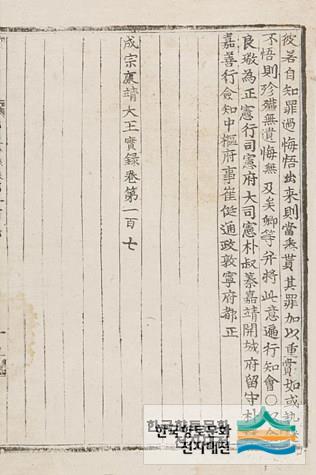 彼若自知罪過悔悟出來則當無貰其罪加以重賞如或執
不悟則殄殲無遺悔無及矣卿等幷將此意遍行知會○
良璥爲正憲行司憲府大司憲朴叔蓁嘉靖開城府留守朴
嘉善行僉知中樞府事崔侹通政敦寧府都正
成宗康靖大王實錄卷第一百七
한국향토문화
전자대전